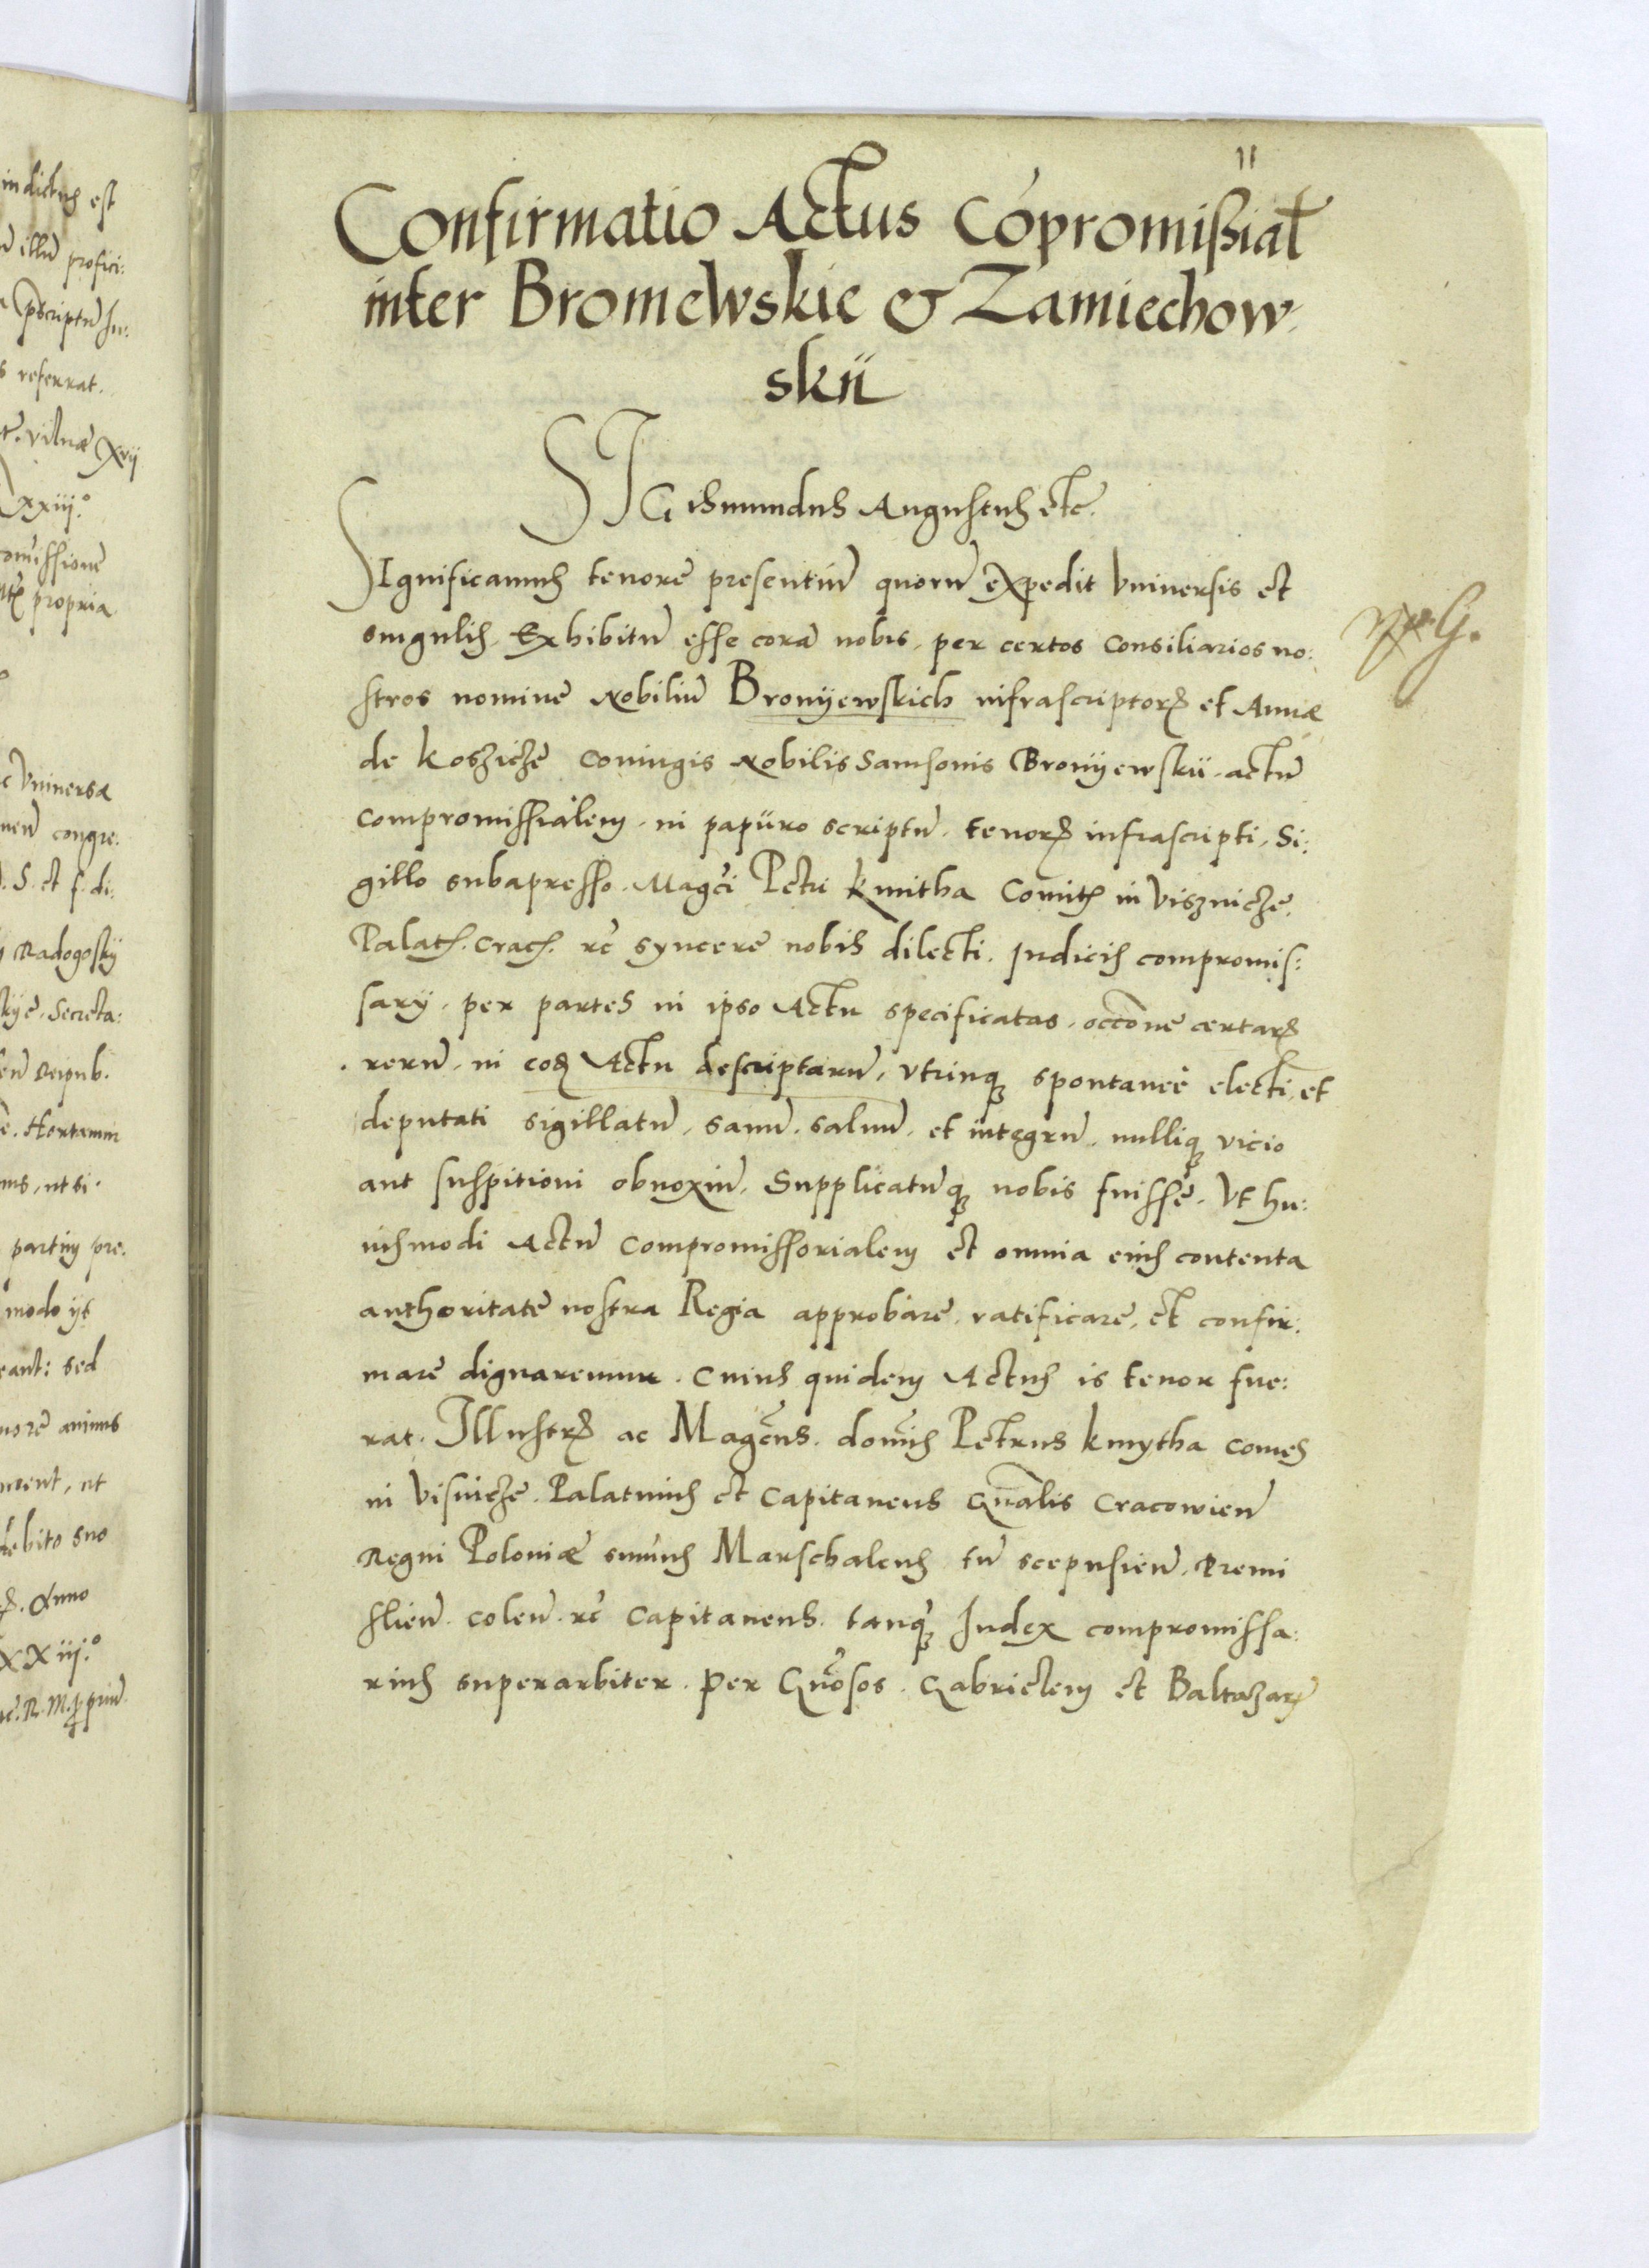 11
Confirmatio Actus Cōpromißial
inter Bromewskie & Zamiechow-
skii
SIGismundus Augustus etc.
SIgnificamus tenore presentiū quorū expedit Vniuersis et
singulis. Exhibitū esse corā nobis, per certos Consiliarios no:
stros nomine Nobiliū Bronÿewskich infrascriptorꝝ et Annæ
de Koszicze Coniugis Nobilis Samsonis Bronÿewskii, actū
compromissialem, in papÿro scriptū, tenorꝭ infrascripti, Si:
gillo subapresso. Magci Petri kmitha Comitꝭ in Viszuicze,
Palatꝭ. Cracꝭ. rc̄ syncere nobis dilecti. Judicis compromis:
sarÿ, per partes in ipso Actu specificatas, occōne certarꝝ
rerū, in eoꝺ Actu descriptarū, vtrinqꝫ spontaneè electi, et
deputati sigillatū, sanū, saluū, et integrū, nulliqꝫ vicio
aut suspitioni obnoxiū, Supplicatūqꝫ nobis fuisse, Vt hu:
iusmodi Actū Compromissorialem et omnia eius contenta
authoritate nostra Regia approbare, ratificare, et confir:
mare dignaremur. Cuius quidem Actus is tenor fue:
rat. Illustrꝭ ac Magcūs. domīs Petrus kmytha comes
in Visnicze. Palatinus et Capitaneus Gn̄alis Cracowien̄
Regni Poloniæ sum̄us Marschalcus tū scepusien̄. Premi
slien̄. Colen̄. rc̄ Capitaneus. tanq̄ꝫ Judex compromissa:
rius superarbiter. Per Gn̄osos. Gabrielem et Baltazarꝭ
in dictus est
ū illū profici:
s referrat.
Vilnæ xvij
xxiij.°
propria
Vniuersæ
congre:
S. et f. di:
Radogosky
Secreta:
Reipub.
Hortamur
ut si
partim pre:
modo ijs
eant: sed
animus
ut
debito suo
Anno
xxiij.°